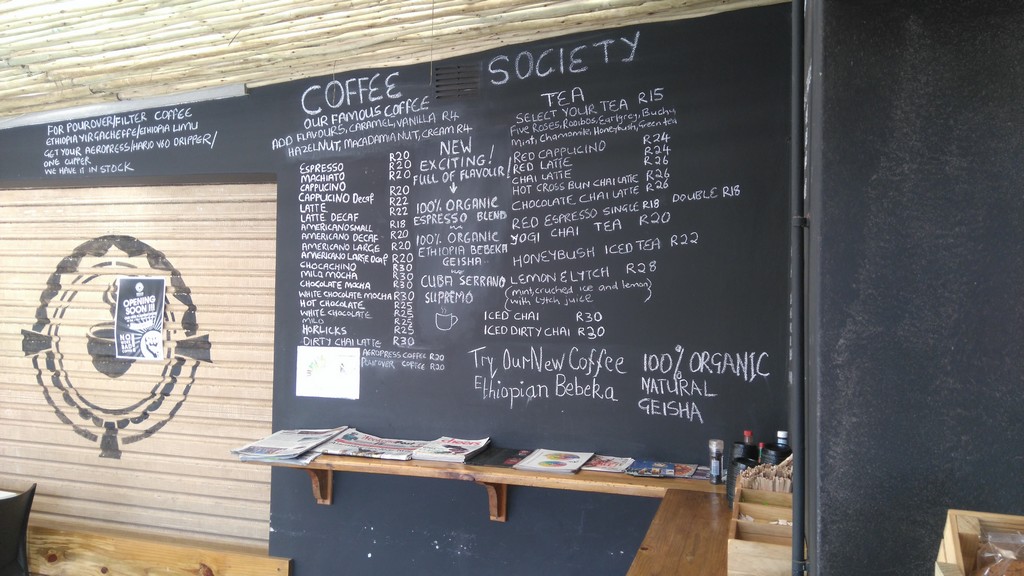 COFFEE SOCIETY
FOR POUROVER/FILTER COFFEE
ETHIOPIA YIRGACHEFFE/ETHIOPIA LIMU
GET YOUR AEROPRESS/HARIO V60 DRIPPER/
ONE CUPPER
WE HAVE IT IN STOCK
OPENING
SOON!!!
OUR FAMOUS COFFEE
ADD FLAVOURS, CARAMEL, VANILLA R4
HAZELNUT, MACADAMIA NUT, CREAM R4
ESPRESSO R20
MACHIATO R20
CAPPUCINO
CAPPUCINO Decaf R20
LATTE R22
LATTE DECAF R22
AMERICANO SMALL R18
AMERICANO DECAF R20
AMERICANO LARGE R20
AMERICANO LARGE Decaf R20
CHOCACHINO R30
MILO MOCHA R30
CHOCOLATE MOCHA R30
WHITE CHOCOLATE MOCHA R30
HOT CHOCOLATE R25
WHITE CHOCOLATE R25
MILO R25
HORLICKS R25
DIRTY CHAI LATTE R30
AEROPRESS COFFEE R20
POUROVER COFFEE R20
NEW
EXCITING!
FULL OF FLAVOUR
100% ORGANIC
ESPRESSO BLEND
100% ORGANIC
ETHIOPIA BEBEKA
GEISHA
CUBA SERRANO
SUPREMO
TEA
SELECT YOUR TEA R15
Five Roses, Rooibos, Earlgrey, Buchu
Mint, Chamomile, Honeybush, Green tea
RED CAPPUCINO R24
RED LATTE R24
CHAI LATTE R26
HOT CROSS BUN CHAI LATTE R26
CHOCOLATE CHAI LATTE R26
RED ESPRESSO SINGLE R18 DOUBLE R18
YOGI CHAI TEA R20
HONEYBUSH ICED TEA R22
LEMON & LYTCH R28
(mint, cruched ice and lemon)
with lytch juice
ICED CHAI R30
ICED DIRTY CHAI R30
Try Our New Coffee
Ethiopian Bebeka
100% ORGANIC
NATURAL
GEISHA